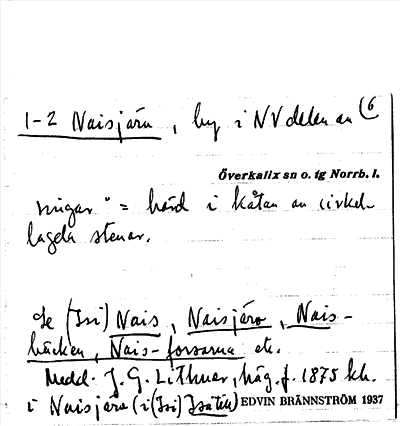 1-2 Naisjärv, by i NV delen av (6
Överkalix sn o. tg Norrb. l.
ringar" = härd i kåtan av cirkel-
lagda stenar.
Se (Isi) Nais, Naisjärv, Nais-
bäcken, Nais-forsarna etc.
Medd. J. G. Lithner, häg. f. 1875 kh.
i Naisjärv (i (Isi)
EDVIN BRÄNNSTRÖM 1937